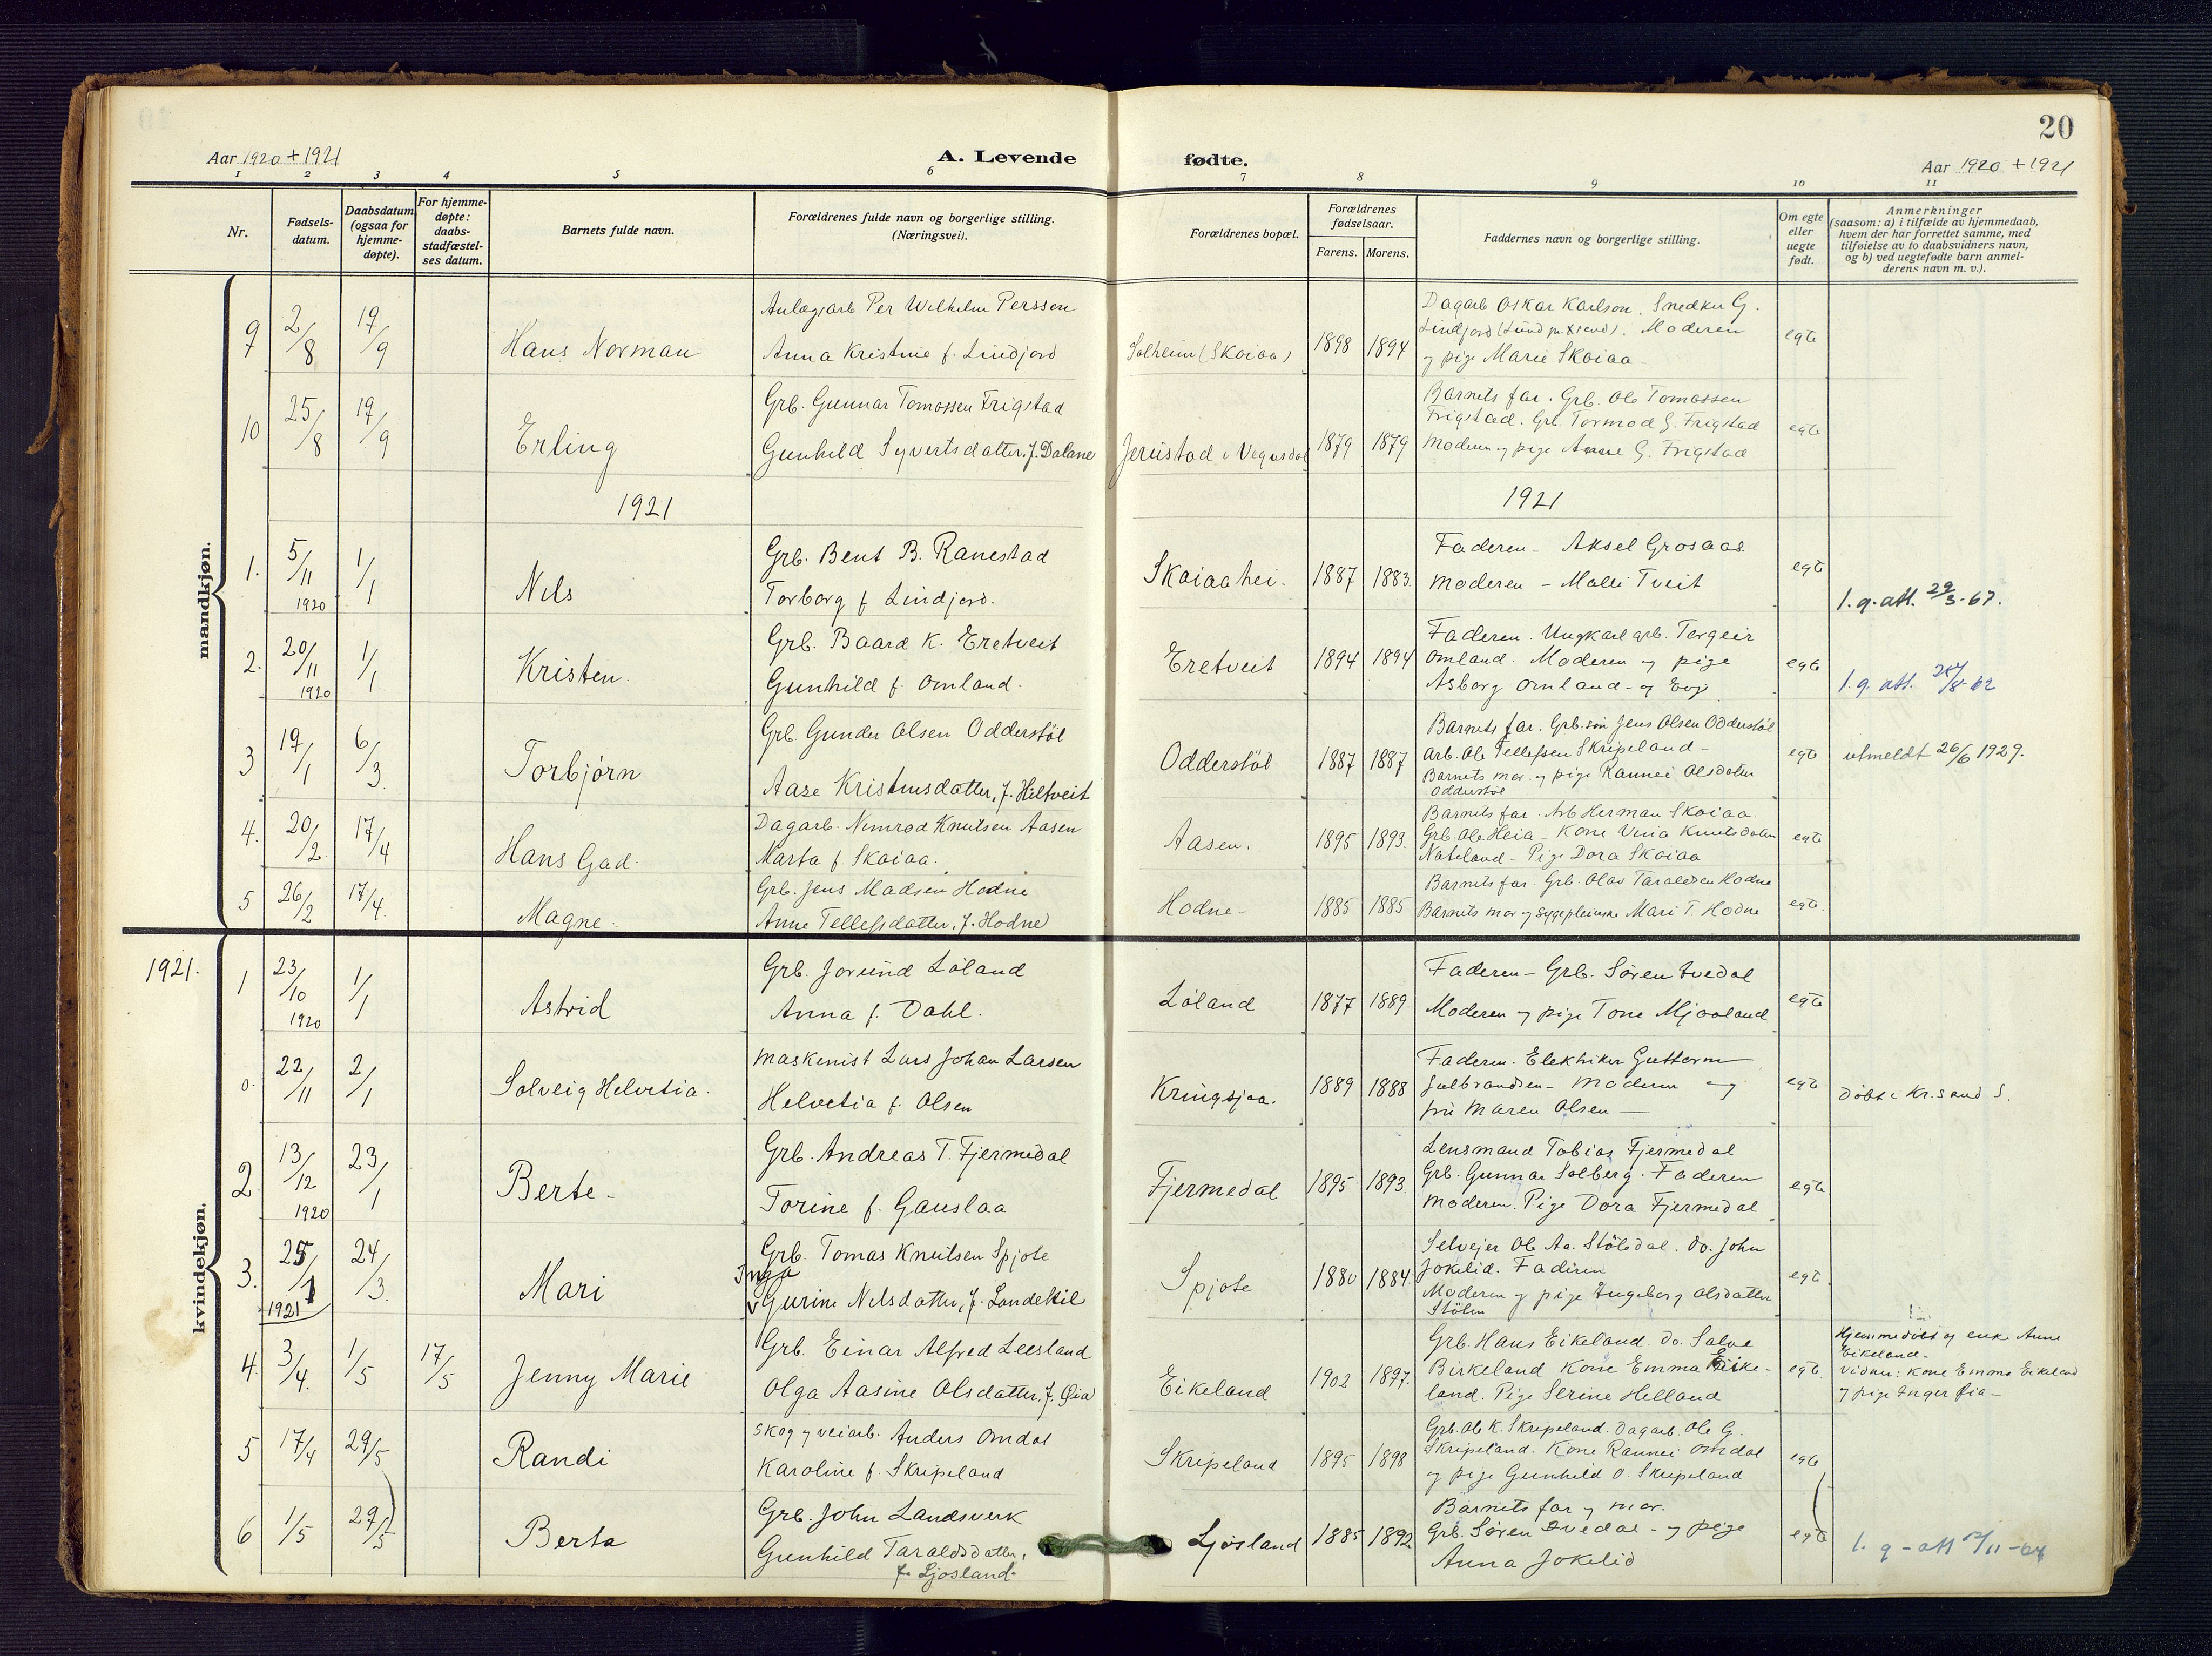 20
Aar 1920 + 1921
A. Levende
fødte.
Aar 1920 + 1921
1 2 3 4 5 6 7 8 9 10 11
Nr.
Fødsels-
datum.
Daabsdatum
(ogsaa for
hjemme-
døpte).
For hjemme-
døpte:
daabs-
stadfæstel-
ses datum.
Barnets fulde navn.
Forældrenes fulde navn og borgerlige stilling.
(Næringsvei).
Forældrenes bopæl.
Forældrenes
fødselsaar.
Farens. Morens.
Faddernes navn og borgerlige stilling.
Om egte
eller
uegte
født.
Anmerkninger
(saasom: a) i tilfælde av hjemmedaab,
hvem der har forrettet samme, med
tilføielse av to daabsvidners navn,
og b) ved uegtefødte barn anmel-
derens navn m. v.).
mandkjøn.
9 2/8 19/9 Hans Norman
Anlægsarb Per Wilhelm Persson
Anna Kristine f. Lindjord
Solheim (Skaiaa) 1898 1894
Dagarb Oskar Karlson. Snedker G.
Lindjord (Lund pr. Xsand). Moderen
og pige Marie Skaiaa -
egte
10 25/8 19/9 Erling
Grb. Gunnar Tomassen Frigstad
Gunhild Syvertsdatter, f. Dalane
Jerustad i Vegusdal 1879 1879
Barnets far. Grb. Ole Tomassen
Frigstad. Grb. Tormod G. Frigstad
Moderen og pige Anne G. Frigstad
egte
1921
1921
1. 5/11 1920 1/1 Nils
Grb. Bent B. Ranestad
Torborg f. Lindjord.
Skaiaahei. 1887 1883.
Faderen - Aksel Grosaas.
Moderen - Malli Tveit
egte
l. q. att. 29/3-67.
2. 20/11 1920 1/1 Kristen.
Grb. Baard K. Eretveit
Gunhild f. Omland.
Eretveit 1894 1894
Faderen. Ungkarl grb. Tergeir
Omland. Moderen og pige
Asborg Omland - og Evje
egte
l. q. att. /8-62
3 19/1 6/3. Torbjørn
Grb. Gunder Olsen Odderstøl
Aase Kristensdatter, f. Hiltveit
Odderstøl 1887 1887
Barnets far. Grb.søn Jens Olsen Odderstøl
Arb. Ole Tellefsen Skripeland -
Barnets mor og pige Rannei Olsdatter
Odderstøl
egte
utmeldt 26/6 1929.
4. 20/2 17/4 Hans Gad.
Dagarb. Nimrod Knutsen Aasen
Marta f. Skaiaa.
Aasen. 1895 1893.
Barnets far. Arb Herman Skaiaa
Grb. Ole Heia - Kone Knutsdatter
Nateland - Pige Dora Skaiaa
egte
5 26/2 17/4. Magne.
Grb. Jens Madsen Hodne
Anne Tellefsdatter, f. Hodne
Hodne - 1885 1885
Barnets far. Grb. Olav Taraldsen Hodne
Barnets mor og sygepleierske Mari T. Hodne
egte.
kvindekjøn.
1921.
1 23/10 1920 1/1 Astrid
Grb. Jorund Løland
Anna f. Dahl.
Løland 1877 1889
Faderen - Grb. Søren Tvedal
Moderen og pige Tone Mjaaland
egte
0. 22/11 2/1 Solveig Helvetia.
Maskinist Lars Johan Larsen
Helvetia f. Olsen
Kringsjaa. 1889 1888
Faderen. Elektriker Guttorm
Gulbrandsen - Moderen og
fru Maren Olsen -
egte
Døbt i Kr.sand S.
2 13/12 1920 23/1 Berte -
Grb. Andreas T. Fjermedal
Torine f. Gauslaa
Fjermedal 1895 1893.
Lensmand Tobias Fjermedal
Grb. Gunnar Solberg. Faderen
Moderen. Pige Dora Fjermedal
egte
3. 25/1 1921 24/3. Mari
Grb. Tomas Knutsen Spjote
Inga
Gurine Nelsdatter, f. Landekil
Spjote 1880 1884.
Selveier Ole Aa. Stølsdal. Do. John
Jokelid. Faderen
Moderen og pige Ingeborg Olsdatter
Stølen
egte
4. 3/4. 1/5 17/5 Jenny Marie
Grb. Einar Alfred Leesland
Olga Aasine Olsdatter, f. Øia
Eikeland 1902 1897.
Grb. Hans Eikeland. Do. Salve
Birkeland Kone Emma Eike-
land. Pige Serine Helland
egte.
Hjemmedøbt av enke Anne
Eikeland -
Vidner: Kone Emma Eikeland
og pige Inger Øia -
5 17/4 29/5 Randi
Skog og veiarb. Anders Omdal
Karoline f. Skripeland
Skripeland 1895 1898
Grb. Ole K. Skripeland. Dagarb. Ole G.
Skripeland. Kone Rannei Omdal
og pige Gunhild O. Skripeland
egte
6 1/5 29/5 Berta
Grb. John Landsverk
Gunhild Taraldsdatter,
f. Ljosland -
Ljosland 1885 1892
Barnets far og mor.
Grb. Søren Tvedal - og pige
Anna Jokelid
egte
l. q - att /11-